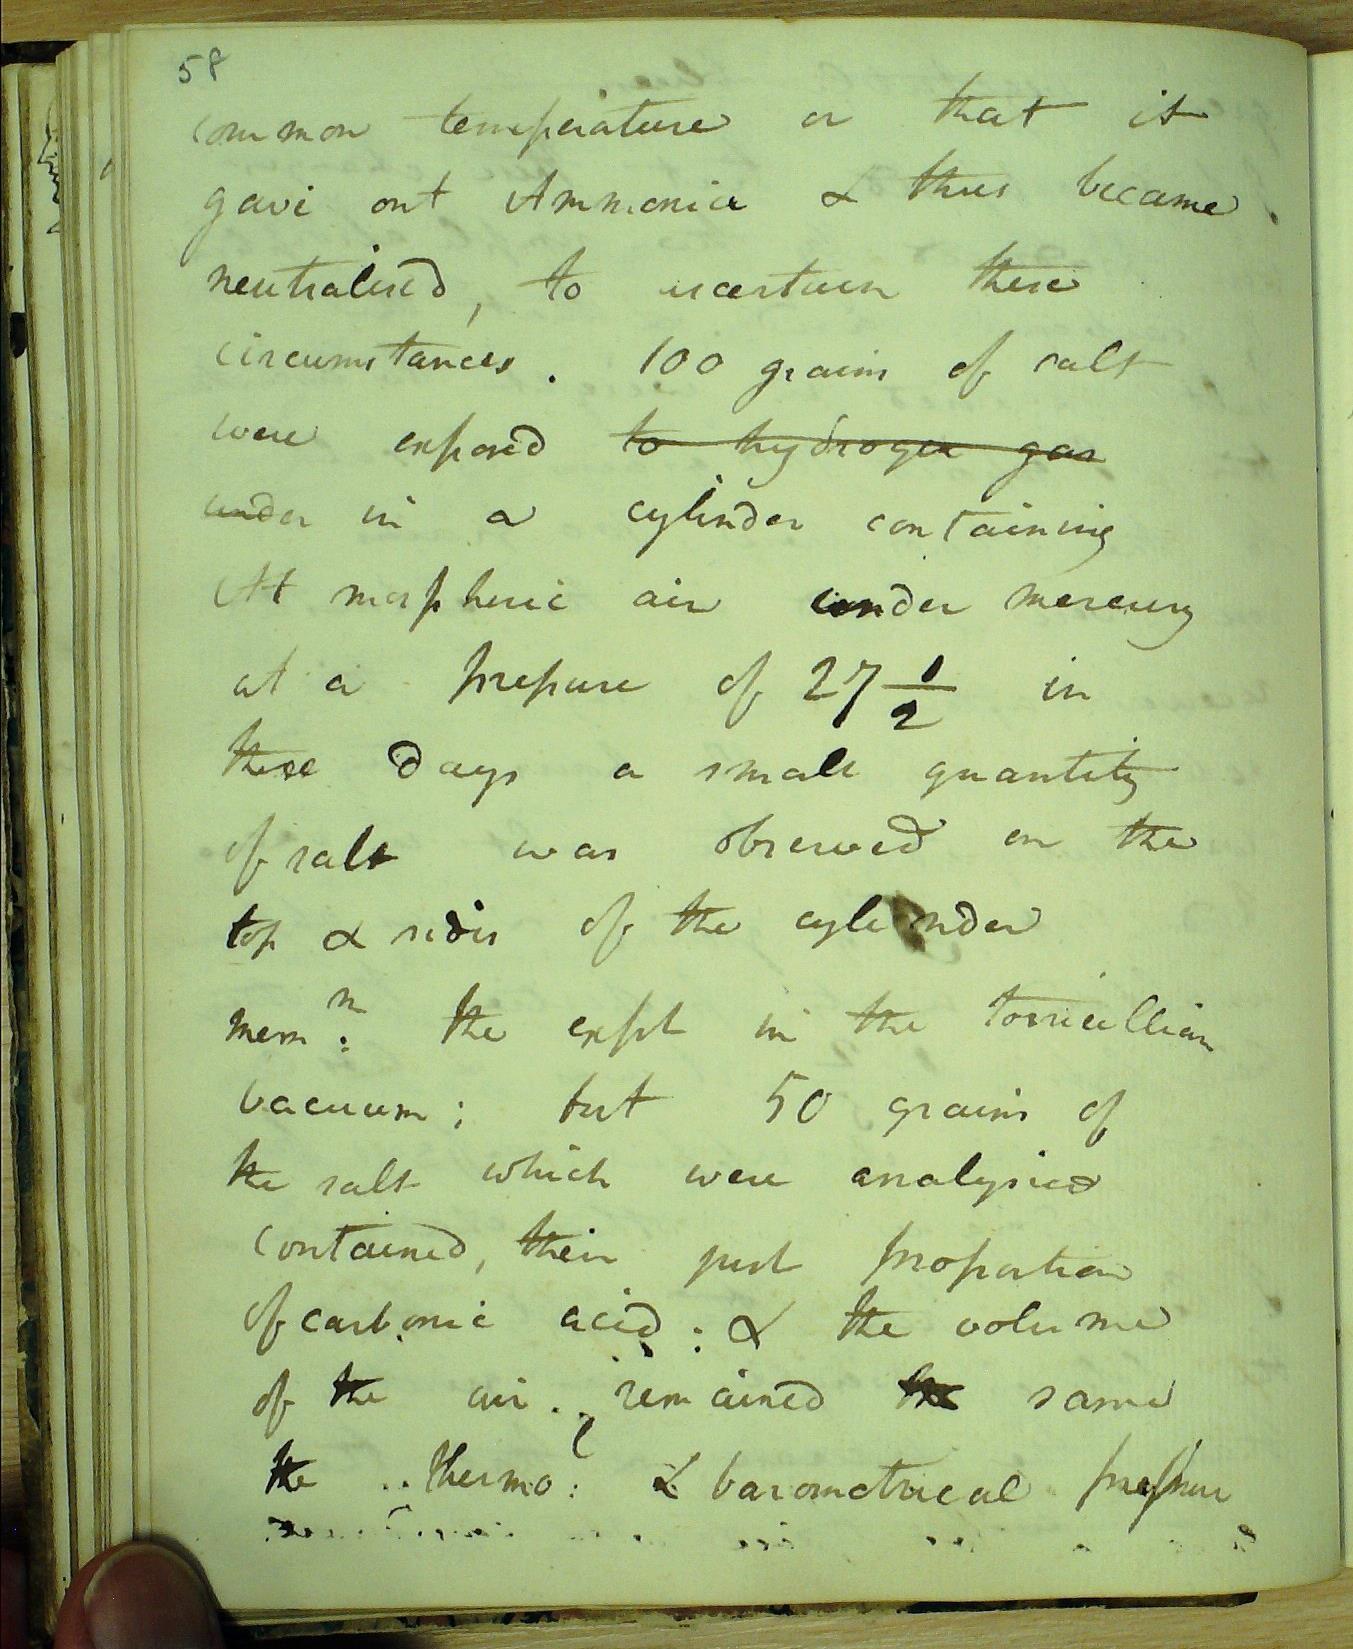 58
common temperature or that it
gave out Ammonia & thus became
neutralised, to ascertain these
circumstances. 100 grains of salt
were exposed to hydrogen gas
under in a cylinder containing
Atmospheric air under mercury
at a pressure of 27 1/2 in
three days a small quantity
of salt was observed on the
top & sides of the cylinder
mem^m: the expt in the torricellian
vacuum; but 50 grains of
the salt which were analysed
contained, their just proportion
of carbonic acid: & the volume
of the air remained the same
the .. thermo^l: & barometrical pressure